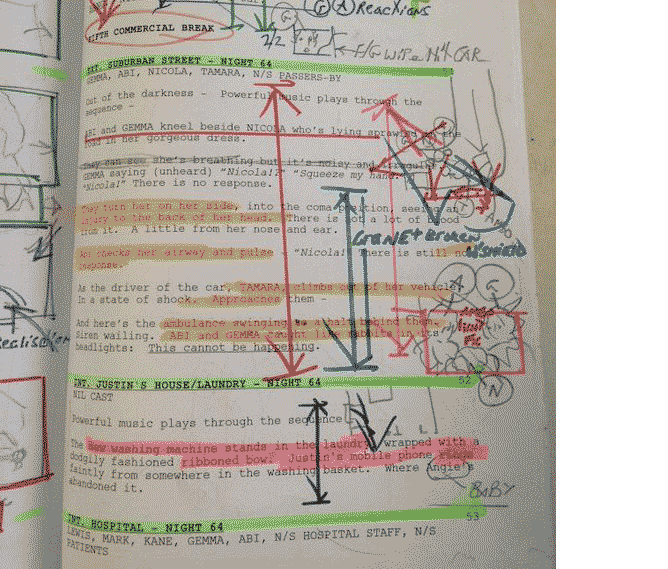 (G) (A) Reactions
FIFTH COMMERCIAL BREAK
2/2
F/G WIPE N4 CAR
EXT. SUBURBAN STREET - NIGHT 64
GEMMA, ABI, NICOLA, TAMARA, N/S PASSERS-BY
Out of the darkness - Powerful music plays through the
sequence -
ABI and GEMMA kneel beside NICOLA who's lying sprawled on the
road in her gorgeous dress.
They can see she's breathing but it's noisy and irregular.
GEMMA saying (unheard) "Nicola!" "Squeeze my hand."
"Nicola!" There is no response.
They turn her on her side, into the coma position, seeing an
injury to the back of her head. There is not a lot of blood
from it. A little from her nose and ear.
Abi checks her airway and pulse - "Nicola!" There is still no
response.
As the driver of the car, TAMARA, climbs out of her vehicle
In a state of shock. Approaches them -
And here's the ambulance swinging to a halt behind them.
Siren wailing. ABI and GEMMA caught like rabbits in its
headlights: This cannot be happening.
A G
N
52
INT. JUSTIN'S HOUSE/LAUNDRY - NIGHT 64
NIL CAST
Powerful music plays through the sequence
The new washing machine stands in the laundry, wrapped with a
dodgily fashioned ribboned bow. Justin's mobile phone rings
faintly from somewhere in the washing basket. Where Angie's
abandoned it.
BABY
53
INT. HOSPITAL - NIGHT 64
LEWIS, MARK, KANE, GEMMA, ABI, N/S HOSPITAL STAFF, N/S
PATIENTS